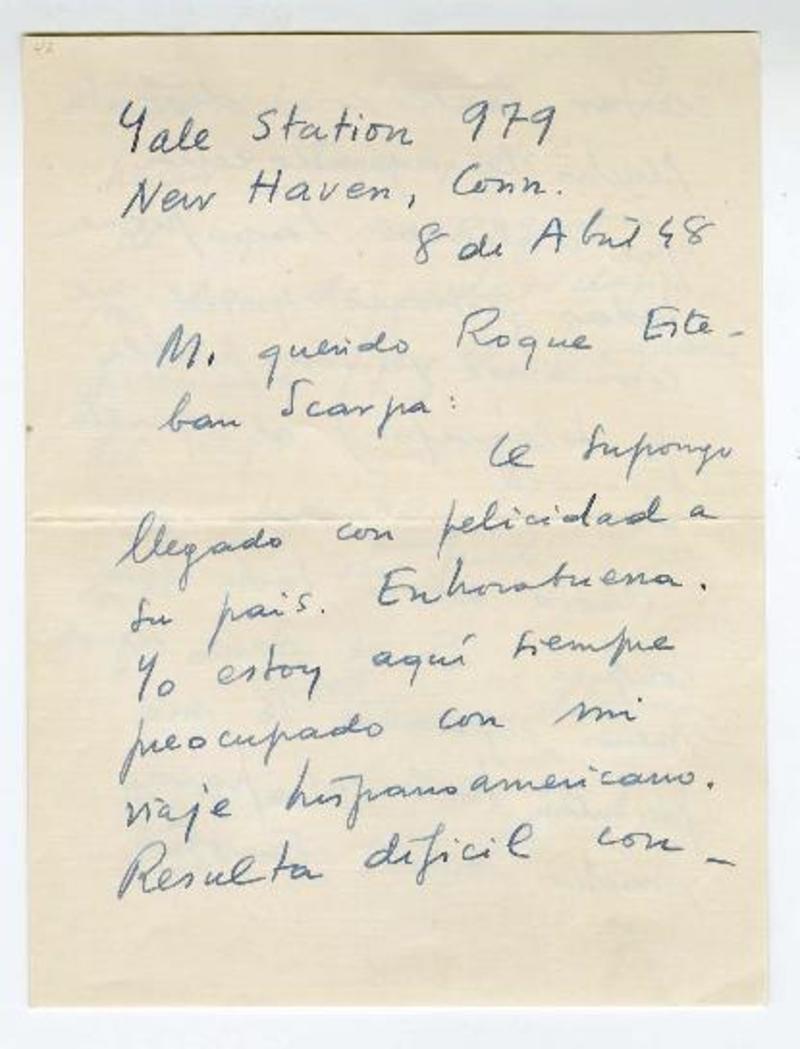 Yale Station 979
New Haven, Conn.
8 de Abril 48
Mi querido Roque Este-
ban Scarpa:
Le supongo
llegado con felicidad a
su pais. Enhorabuena.
Yo estoy aquí siempre
preocupado con mi
viaje hispanoamericano.
Resulta dificil con-